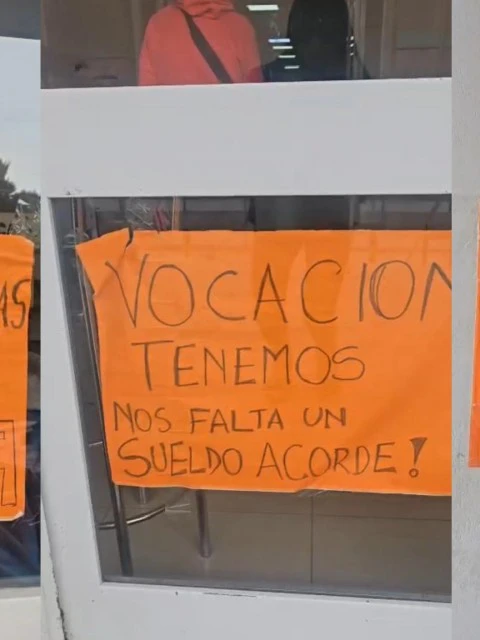 VOCACION
TENEMOS
NOS FALTA UN
SUELDO ACORDE!